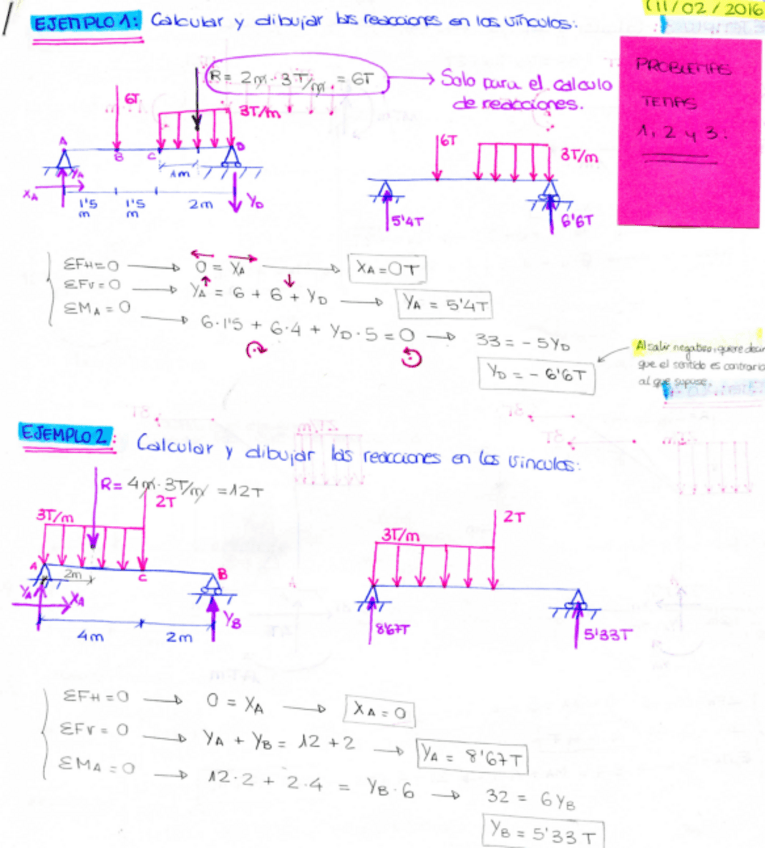 (11/02/2016)
EJEMPLO 1: Calcular y dibujar las reacciones en los vínculos:
PROBLEMAS
TEMAS
1, 2 y 3.
R = 2m · 3T/m = 6T
Solo para el calculo
de reacciones.
6T
3T/m
A
B
C
D
1m
XA
YA
1'5
m
1'5
m
2m
YD
6T
3T/m
5'4T
6'6T
ΣFH=0 → 0 = XA → XA=0T
ΣFV=0 → YA = 6 + 6 + YD → YA = 5'4T
ΣMA=0 → 6·1'5 + 6·4 + YD·5 = 0 → 33 = -5YD
YD = -6'6T
Al salir negativo, quiere decir
que el sentido es contrario
al que supuse.
EJEMPLO 2: Calcular y dibujar las reacciones en los vínculos:
R= 4m·3T/m =12T
2T
3T/m
A
2m
C
B
YA
XA
YB
4m
2m
2T
3T/m
8'67T
5'33T
ΣFH=0 → 0 = XA → XA=0
ΣFV=0 → YA + YB = 12+2 → YA = 8'67T
ΣMA=0 → 12·2 + 2·4 = YB·6 → 32 = 6YB
YB = 5'33T